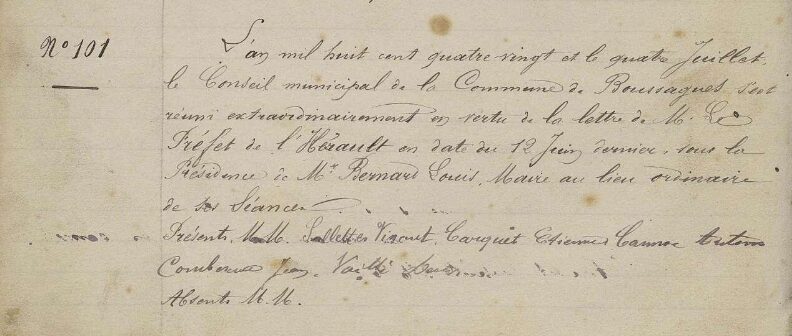 N° 101
L'an mil huit cent quatre vingt et le quatre Juillet.
le Conseil municipal de la Commune de Boussagues s'est
réuni extraordinairement en vertu de la lettre de M. Le
Préfet de l'Hérault en date du 12 Juin dernier, sous la
Présidence de Mr Bernard Louis, Maire au lieu ordinaire
de ses Séances
Présents, M.M. Carquet Etienne
Jean,
Absents M.M.